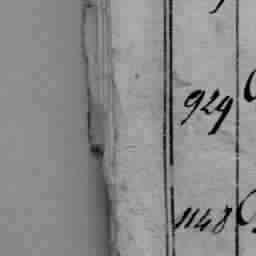 929
1148